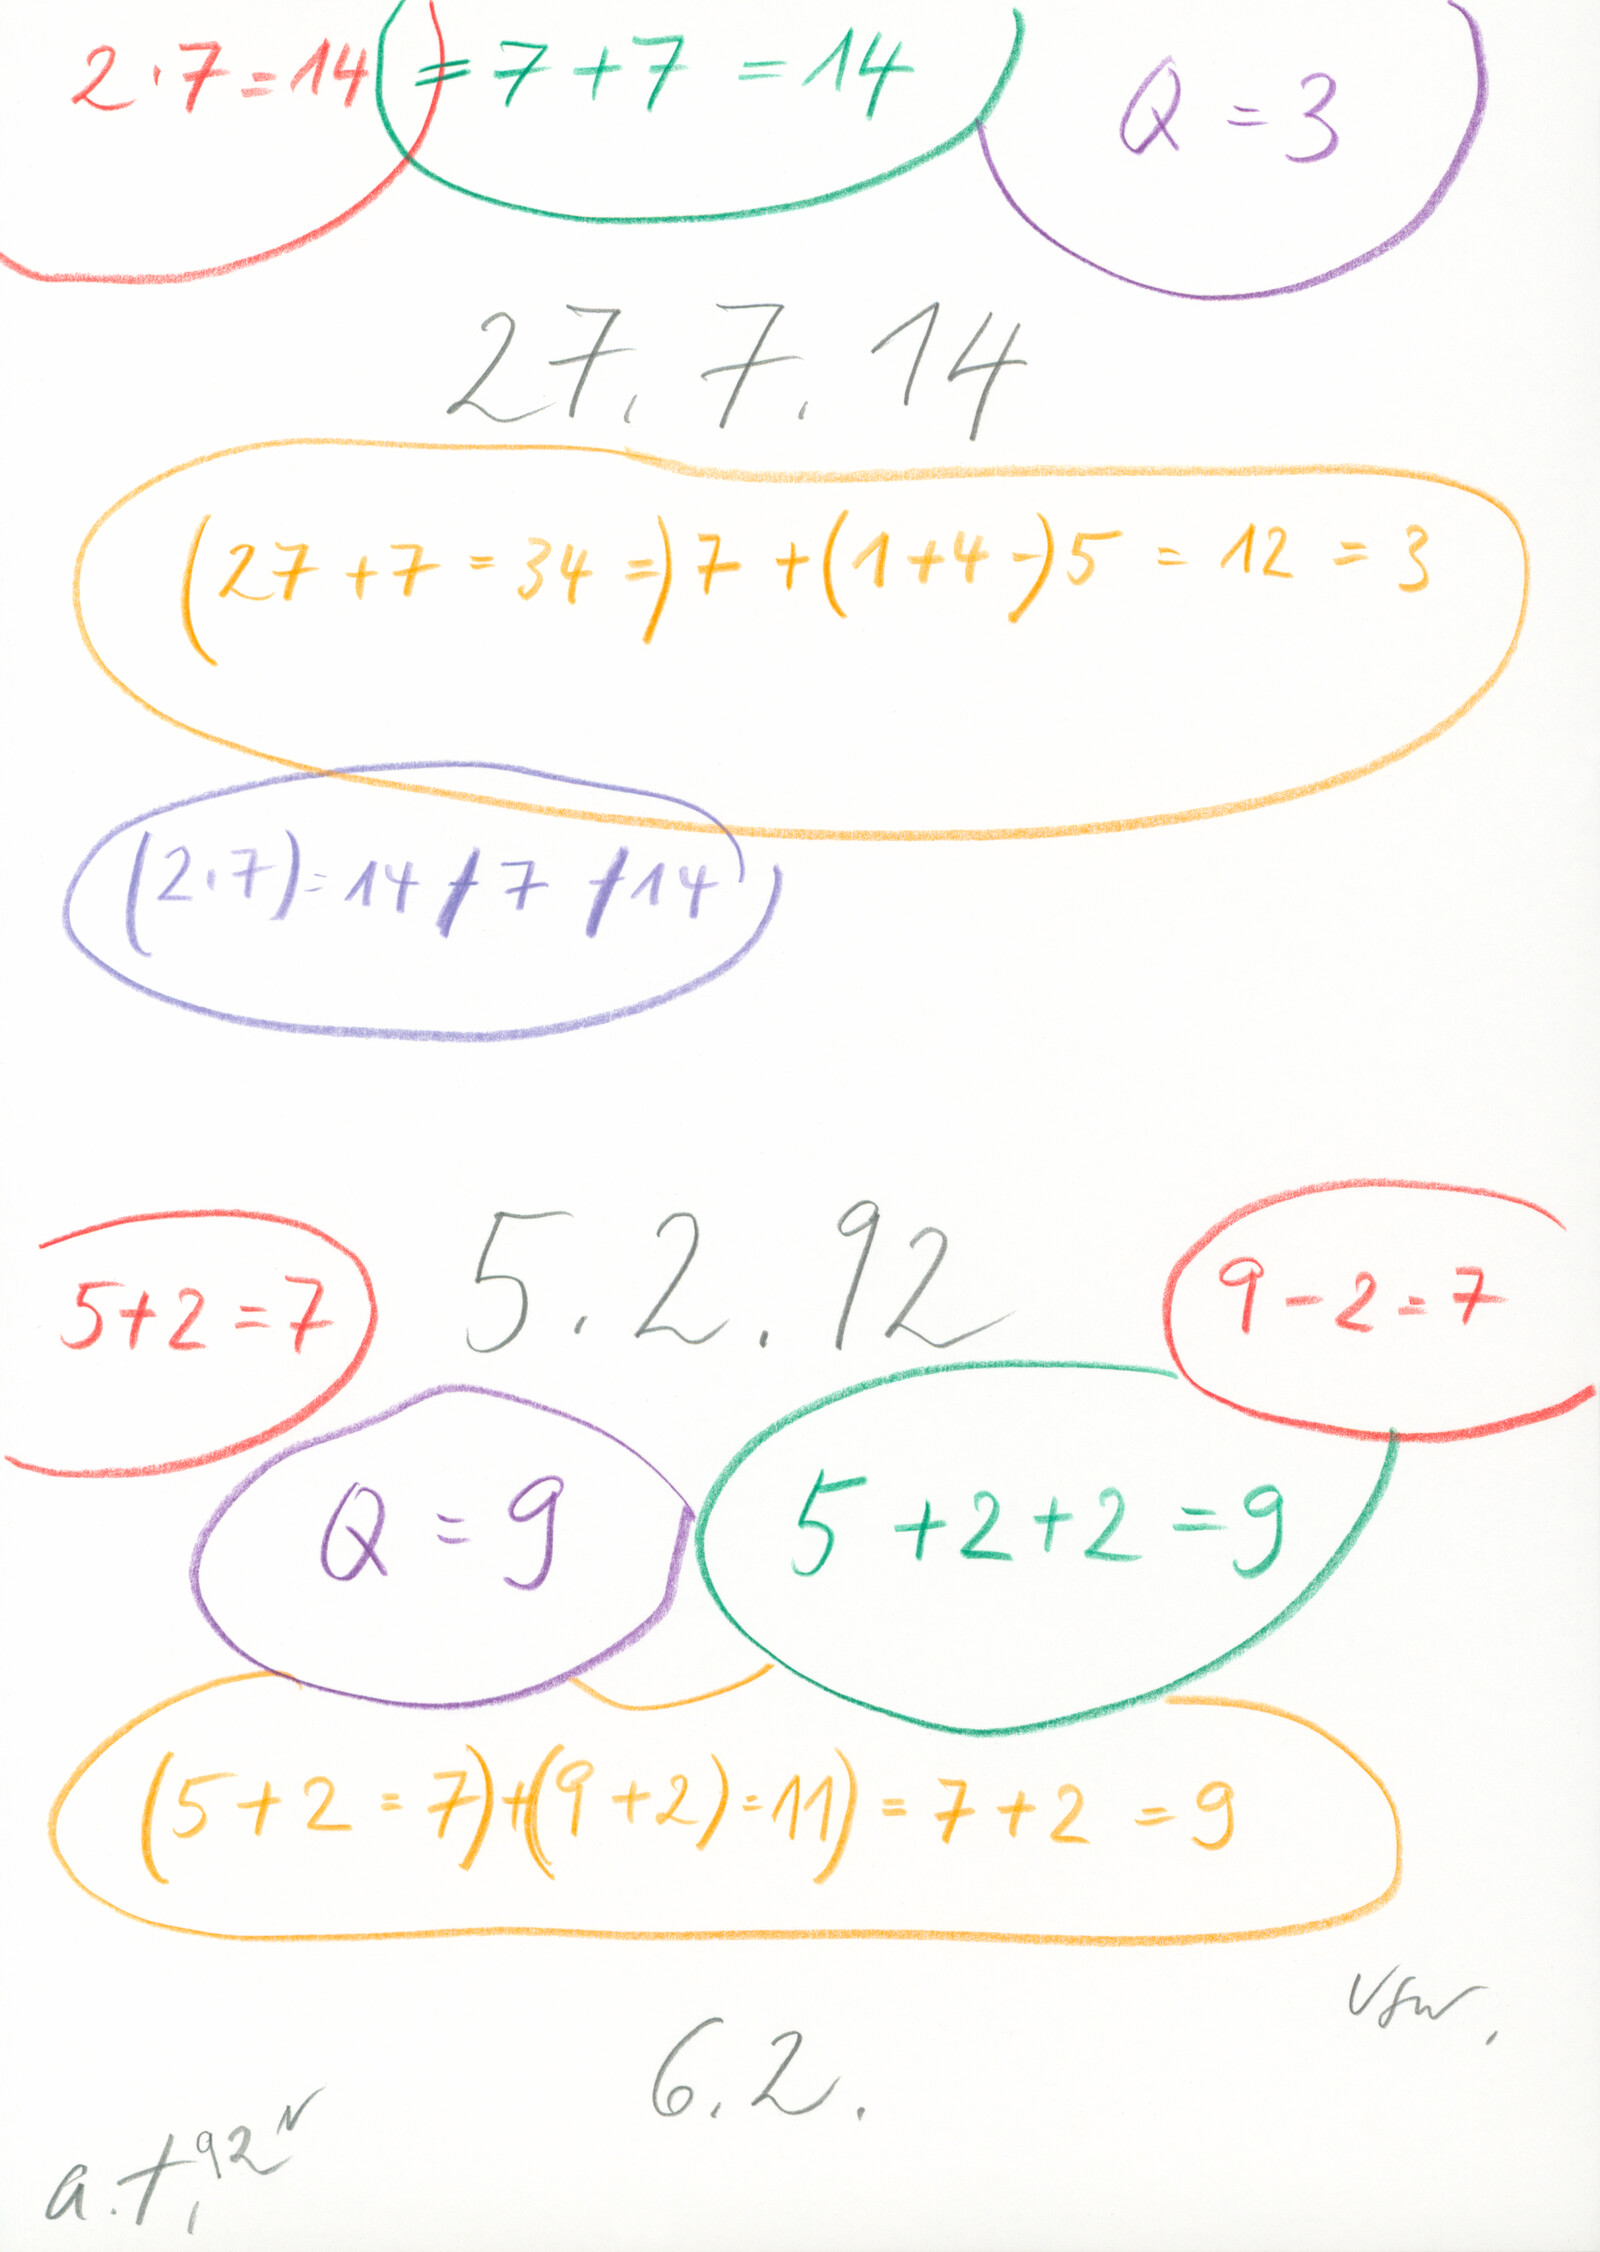 2·7=14 (= 7+7 = 14 Q = 3
27. 7. 14
(27+7=34=)7+(1+4=)5=12=3
(2·7)=14/7/14
5+2=7 5.2.92 9-2=7
Q = 9 5+2+2=9
(5+2=7)+(9+2)=11)=7+2=9
usw.
6.2.
a.t. 92